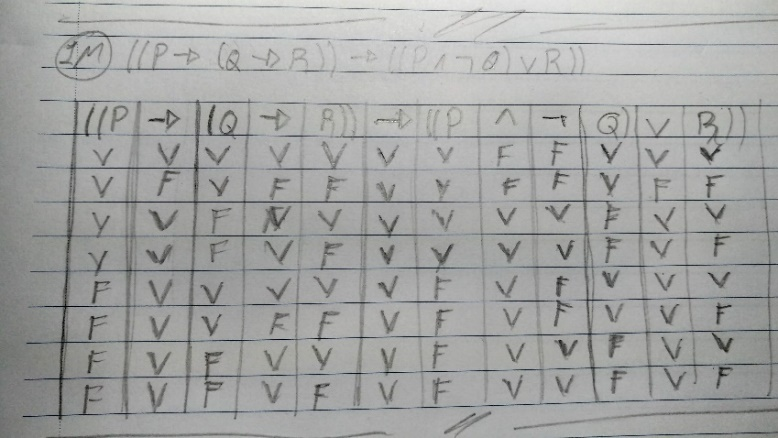 2M ((P → (Q → R)) → ((P ∧ ¬ Q) ∨ R))
((P → (Q → R)) → ((P ∧ ¬ Q) ∨ R))
V V V V V V V F F V V V
V F V F F V V F F V F F
V V F V V V V V V F V V
V V F V F V V V V F V F
F V V V V V F V F V V V
F V V F F V F V F V V F
F V F V V V F V V F V V
F V F V F V F V V F V F